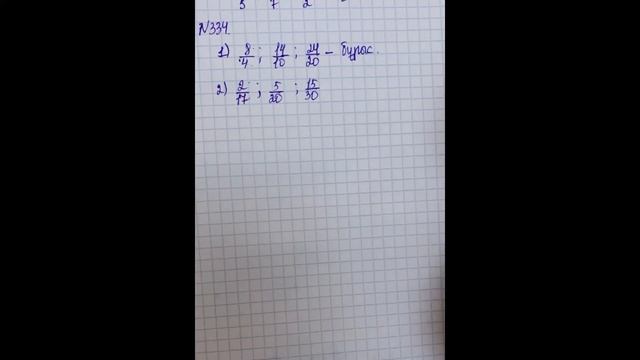 3 7 2
№334.
1) 8/4; 14/10; 24/20 – бұрыс.
2) 2/17; 5/20; 15/30